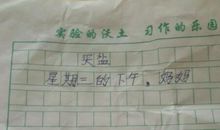 实验的沃土 习作的乐园
买盐
星期二的下午，妈妈